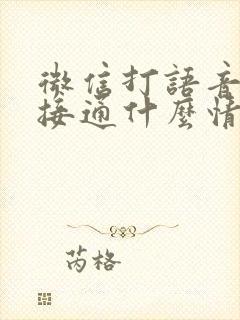 微信打語音
接通什麼情
芮格